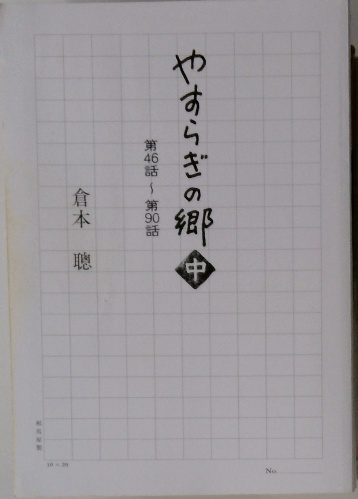 やすらぎの郷
中
第46話～第90話
倉本 聰
相馬屋製
20×20
No.